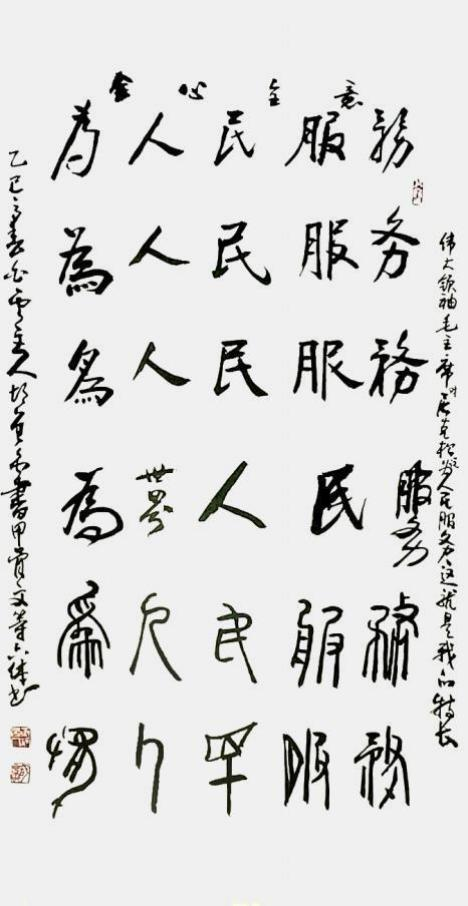 全心全意
为人民服務
為人民服务
為人民服務
為世界人民服务
為人民服務
為人民服務
伟大领袖毛主席对尼克松说为人民服务这就是我的特长
乙巳之春白云主人書甲骨文等六体书